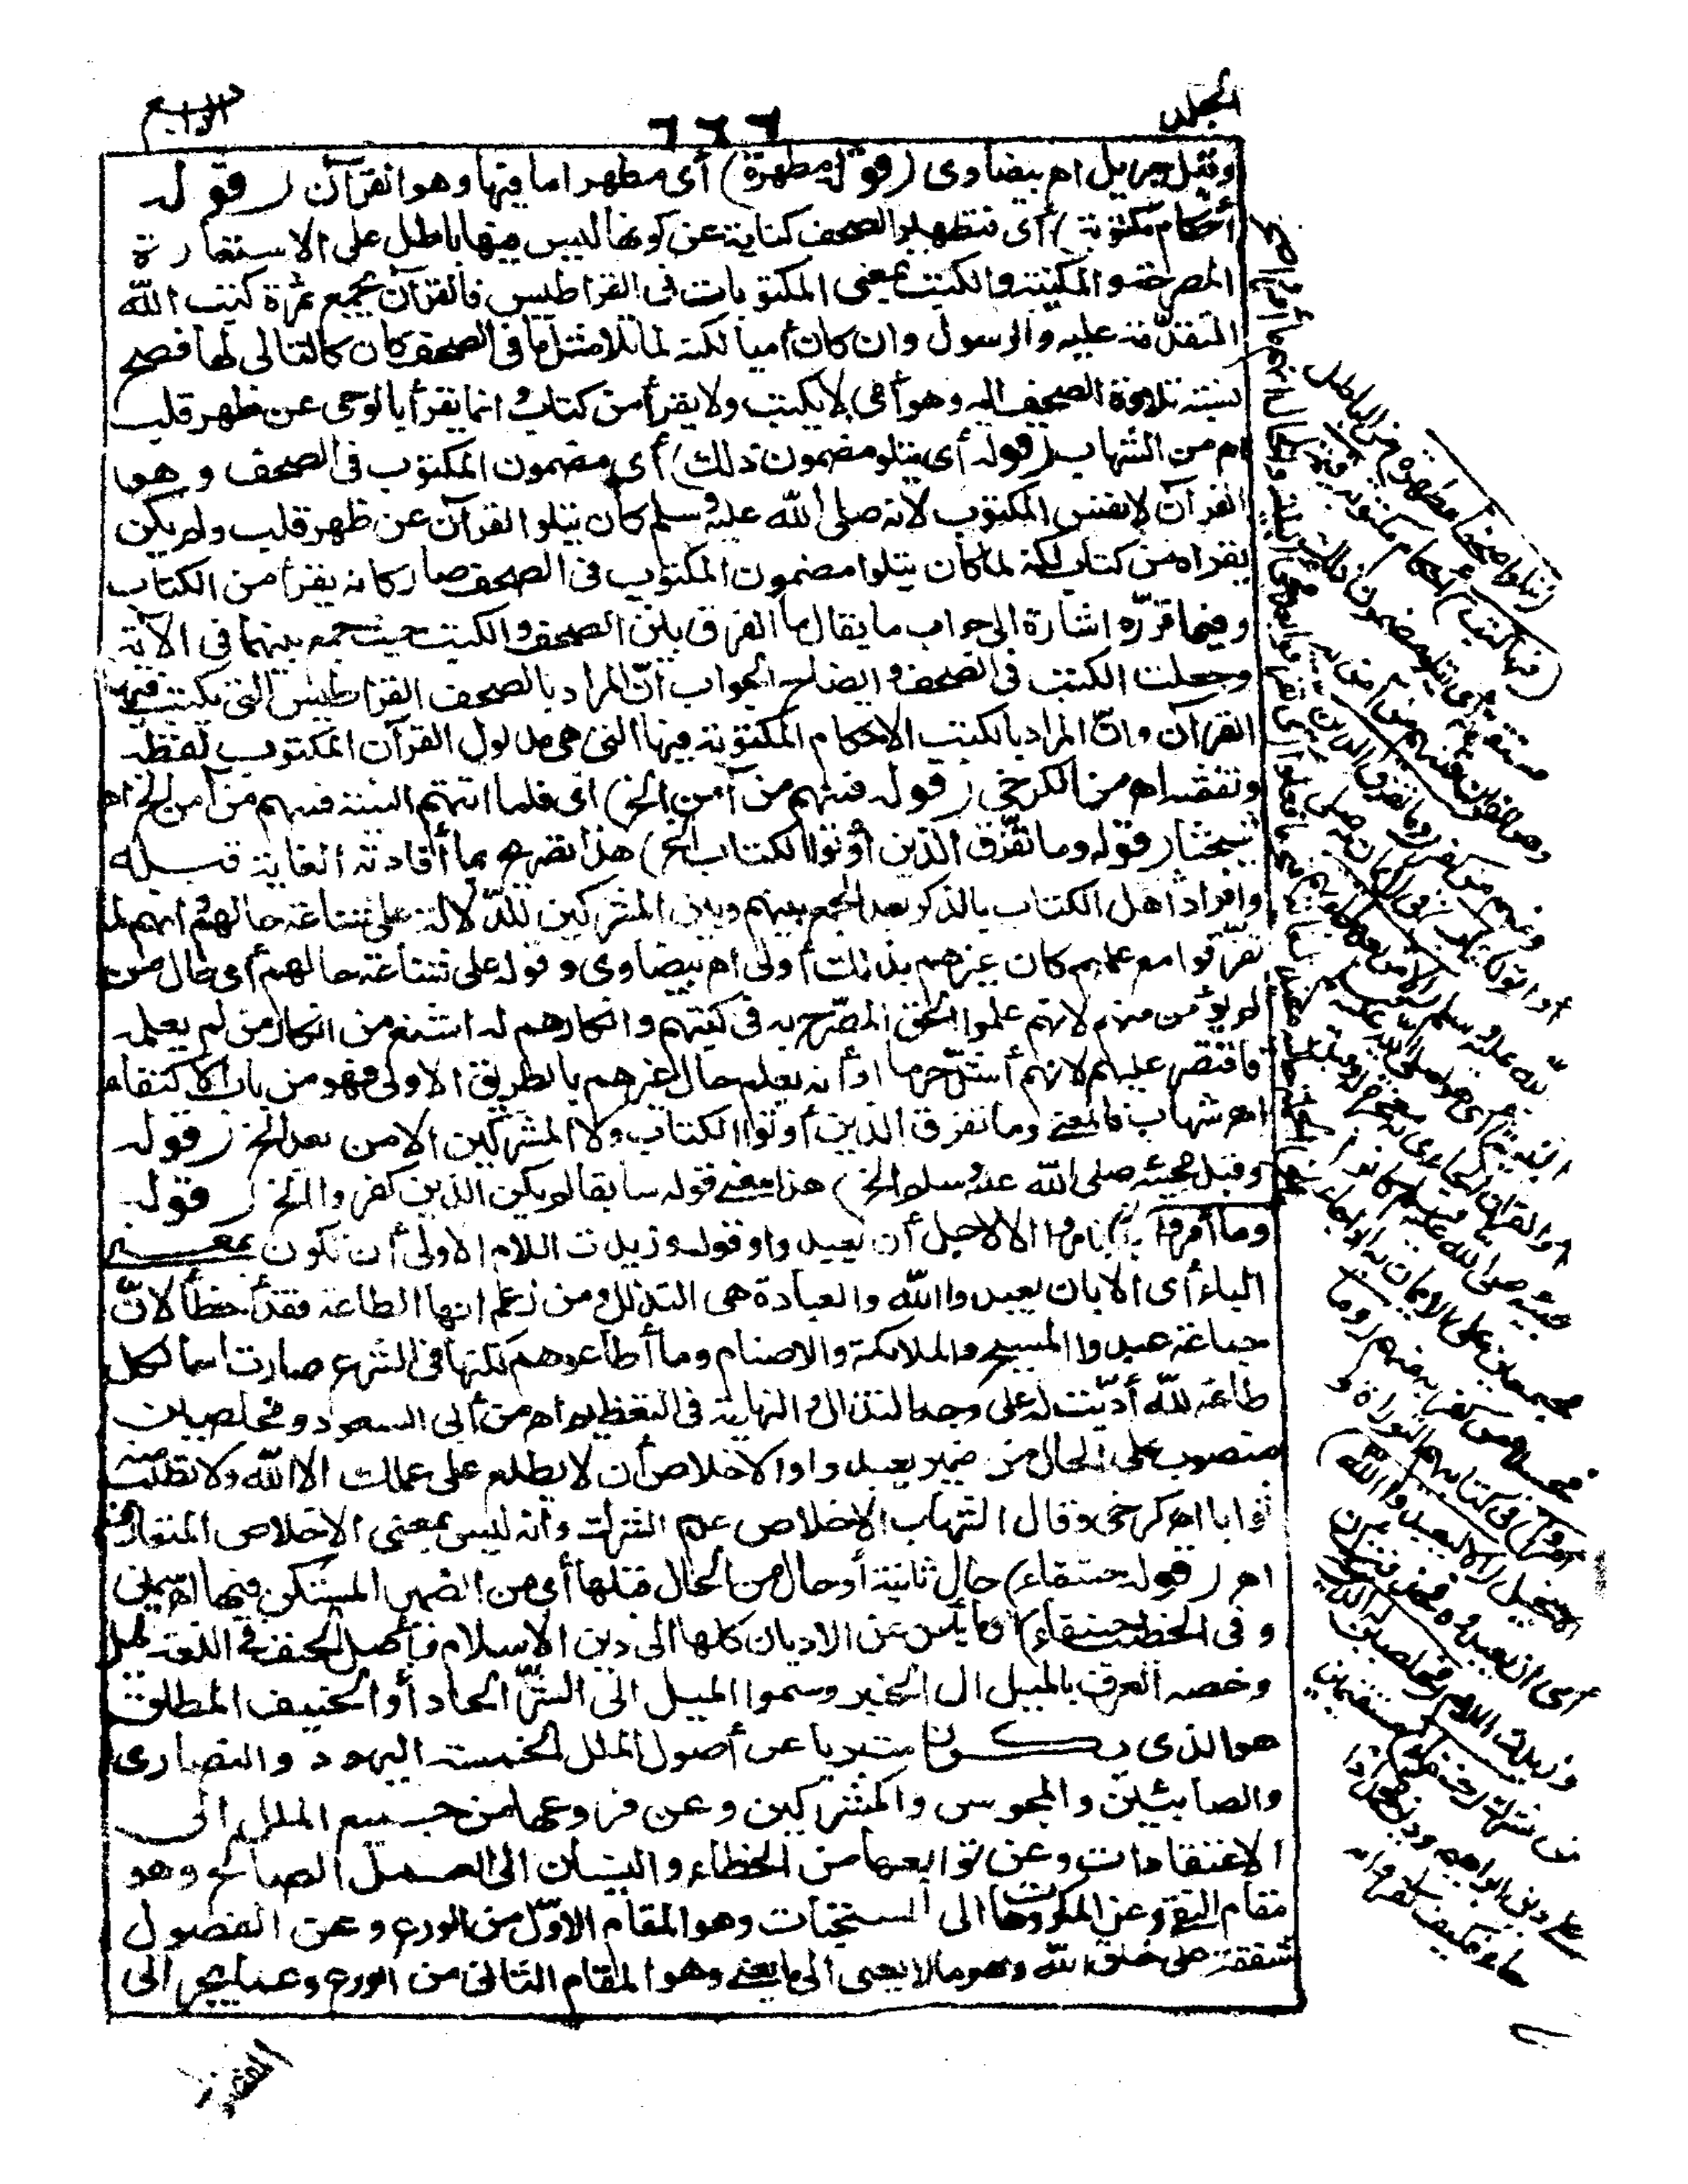 المجلد
٦٦٦
الرابع
وقيل جبريل اه بيضاوى (قوله مطهرة) أى مطهرا ما فيها وهو القرآن (قوله
أحكام مكتوبة) أى فتطهير الصحف كناية عن كونها ليس فيها باطل على الاستعارة
المصرحة والمكنية والكتب بمعنى المكتوبات فى القراطيس فالقرآن يجمع ثمرة كتب الله
المتقدّمة عليه والرسول وان كان أميا لكنه لما تلا مثل ما فى الصحف كان كالتالى لها فصح
نسبته تلاوة الصحف اليه وهو أمى لا يكتب ولا يقرأ من كتاب وانما يقرأ بالوحى عن ظهر قلب
اه من الشهاب (قوله أى يتلو مضمون ذلك) أى مضمون المكتوب فى الصحف وهوا
القرآن لا نفس المكتوب لأنه صلى الله عليه وسلم كان يتلوا القرآن عن ظهر قلب ولم يكن
يقراه من كتاب لكنه لما كان يتلوا مضمون المكتوب فى الصحف صار كانه يقرأ من الكتاب
وفيما قرّره اشارة الى جواب ما يقال ما الفرق بين الصحف والكتب حيث جمع بينهما فى الآية
وجعلت الكتب فى الصحف وايضاح الجواب انّ المراد بالصحف القراطيس التى يكتب فيها
القرآن وانّ المراد بالكتب الاحكام المكتوبة فيها التى هى مدلول القرآن المكتوب لفظه
ونقشه اه من الكرخى (قوله فمنهم من آمن الخ) اى فلما اتتهم البينة فمنهم من آمن الخ اه
شيخنا (قوله وما تفرّق الذين أوتوا الكتاب الخ) هذا تصريح بما أفادته الغاية قبله
وافراد اهل الكتاب بالذكر بعد الجمع بينهم وبين المشركين للدّلالة على شناعة حالهم وانهم لما
تفرّقوا مع علمهم كان غيرهم بذلك أولى اه بيضاوى وقوله على شناعة حالهم أى حال من
لم يؤمن منهم لانهم علموا الحق المصرّح به فى كتبهم وانكارهم له اشنع من انكار من لم يعلمه
فاقتصر عليهم لانهم أشدّ جرما أو أنه يعلم حال غيرهم بالطريق الاولى فهو من باب الاكتفاء
اهـ شهاب فالمعنى وما تفرق الذين أوتوا الكتاب ولا المشركين الا من بعد الخ (قوله
وقبل مجيئه صلى الله عليه وسلم الخ) هذا معنى قوله سابقا لم يكن الذين كفروا الخ (قوله
وما أمروا الخ) أى وما امروا الا لاجل أن يعبدوا وقوله وزيدت اللام الاولى أن تكون بمعنى
الباء أى الا بان يعبدوا الله والعبادة هى التذلل ومن زعم انها الطاعة فقد أخطأ لانّ
جماعة عبدوا المسيح والملائكة والاصنام وما أطاعوهم لكنها فى الشرع صارت اسما لكل
طاعة لله أدّيت له على وجه التذلل والنهاية فى التعظيم اه من أبى السعود ومخلصين
منصوب على الحال من ضمير يعبدوا والاخلاص أن لا يطلع على عملك الا الله ولا تطلب منه
ثوابا اه كرخى وقال الشهاب الاخلاص عدم الشرك وأنه ليس بمعنى الاخلاص المتعارف
اه (قوله حنفاء) حال ثانية أو حال من الحال قبلها أى من الضمير المستكن فيها اه سمين
وفى الخطيب حنفاء أى مائلين عن الاديان كلها الى دين الاسلام فأصل الحنف فى اللغة الميل
وخصه العرف بالميل الى الخير وسموا الميل الى الشرّ الحادا والحنيف المطلق
هو الذى يكون متبريا عن أصول الملل الخمسة اليهود والنصارى
والصابئين والمجوس والمشركين وعن فروعها من جميع الملل الى
الاعتقادات وعن توابعها من الخطاء والنسيان الى العمل الصالح وهو
مقام التقى وعن المكروهات الى المستحبات وهو المقام الاوّل من الورع وعن الفضول
شفقة على خلق الله وهو ما لا يعنى الى ما يعنى وهو المقام الثانى من الورع وعما يجر الى
(يتلوا صحفا مطهرة) من الباطل
(فيها كتب) أحكام مكتوبة
مستقيمة أى يتلو مضمون ذلك
وهو القرآن فمنهم من آمن به
ومنهم من كفر (وما تفرق الذين
اوتوا الكتاب)
الله عليه وسلم
البينة) أى هو صلى الله عليه وسلم
أو القرآن الجائى به
مجيئه صلى الله عليه وسلم كانوا
مجتمعين على الايمان به
من كفر به منهم (وما
أمروا) فى كتابهم التوراة و
الانجيل (الا ليعبدوا الله)
أى ان يعبدوه
وزيدت اللام (مخلصين له الدين)
من الشرك (حنفاء) مستقيمين
على دين ابراهيم ودين محمد اذا
جاء فكيف كفروا به